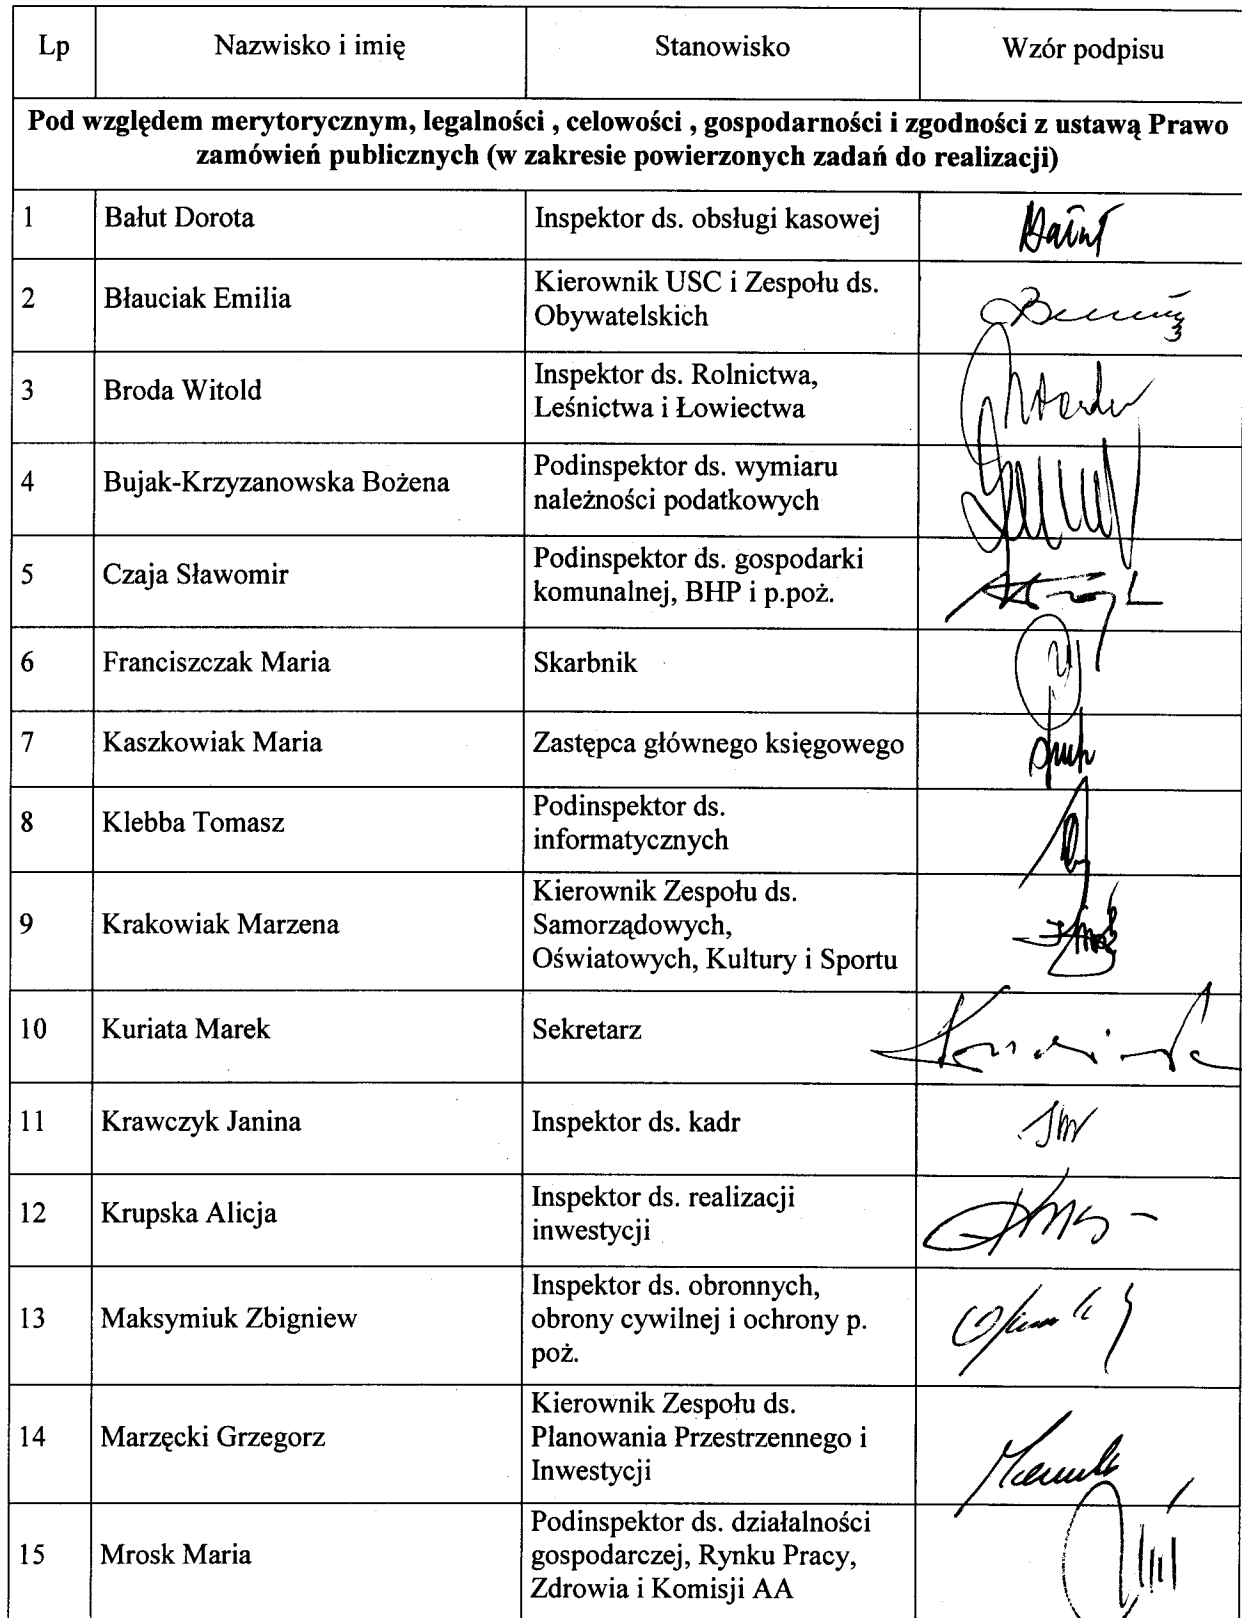 Lp Nazwisko i imię Stanowisko Wzór podpisu
Pod względem merytorycznym, legalności , celowości , gospodarności i zgodności z ustawą Prawo
zamówień publicznych (w zakresie powierzonych zadań do realizacji)
1 Bałut Dorota Inspektor ds. obsługi kasowej Bałut
2 Błauciak Emilia Kierownik USC i Zespołu ds.
Obywatelskich
3 Broda Witold Inspektor ds. Rolnictwa,
Leśnictwa i Łowiectwa
4 Bujak-Krzyzanowska Bożena Podinspektor ds. wymiaru
należności podatkowych
5 Czaja Sławomir Podinspektor ds. gospodarki
komunalnej, BHP i p.poż.
6 Franciszczak Maria Skarbnik
7 Kaszkowiak Maria Zastępca głównego księgowego
8 Klebba Tomasz Podinspektor ds.
informatycznych
9 Krakowiak Marzena Kierownik Zespołu ds.
Samorządowych,
Oświatowych, Kultury i Sportu
10 Kuriata Marek Sekretarz
11 Krawczyk Janina Inspektor ds. kadr
12 Krupska Alicja Inspektor ds. realizacji
inwestycji
13 Maksymiuk Zbigniew Inspektor ds. obronnych,
obrony cywilnej i ochrony p.
poż.
14 Marzęcki Grzegorz Kierownik Zespołu ds.
Planowania Przestrzennego i
Inwestycji
15 Mrosk Maria Podinspektor ds. działalności
gospodarczej, Rynku Pracy,
Zdrowia i Komisji AA